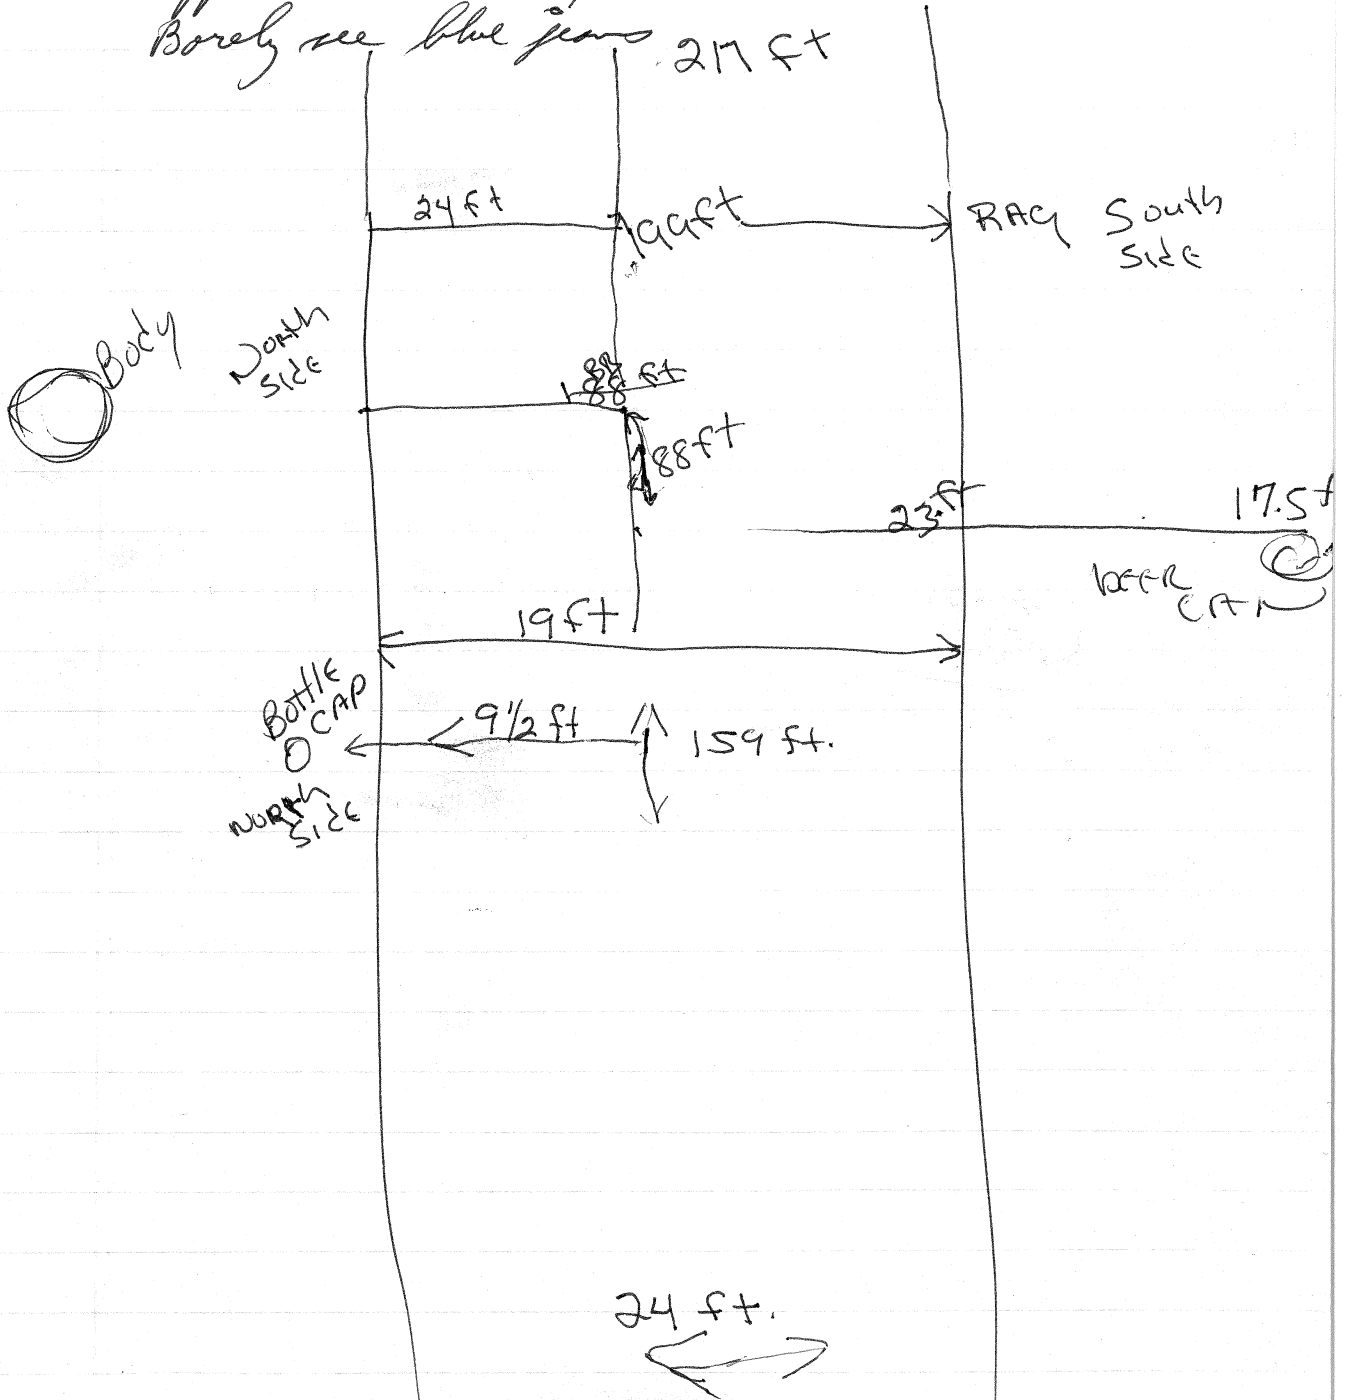 Barely see blue jeans
217 ft
24 ft
199 ft
RAG South
Side
Body
North
Side
88 ft
88 ft
23 ft
17.5 f
BEER
CAN
19 ft
Bottle
CAP
9 1/2 ft
159 ft.
North
Side
24 ft.